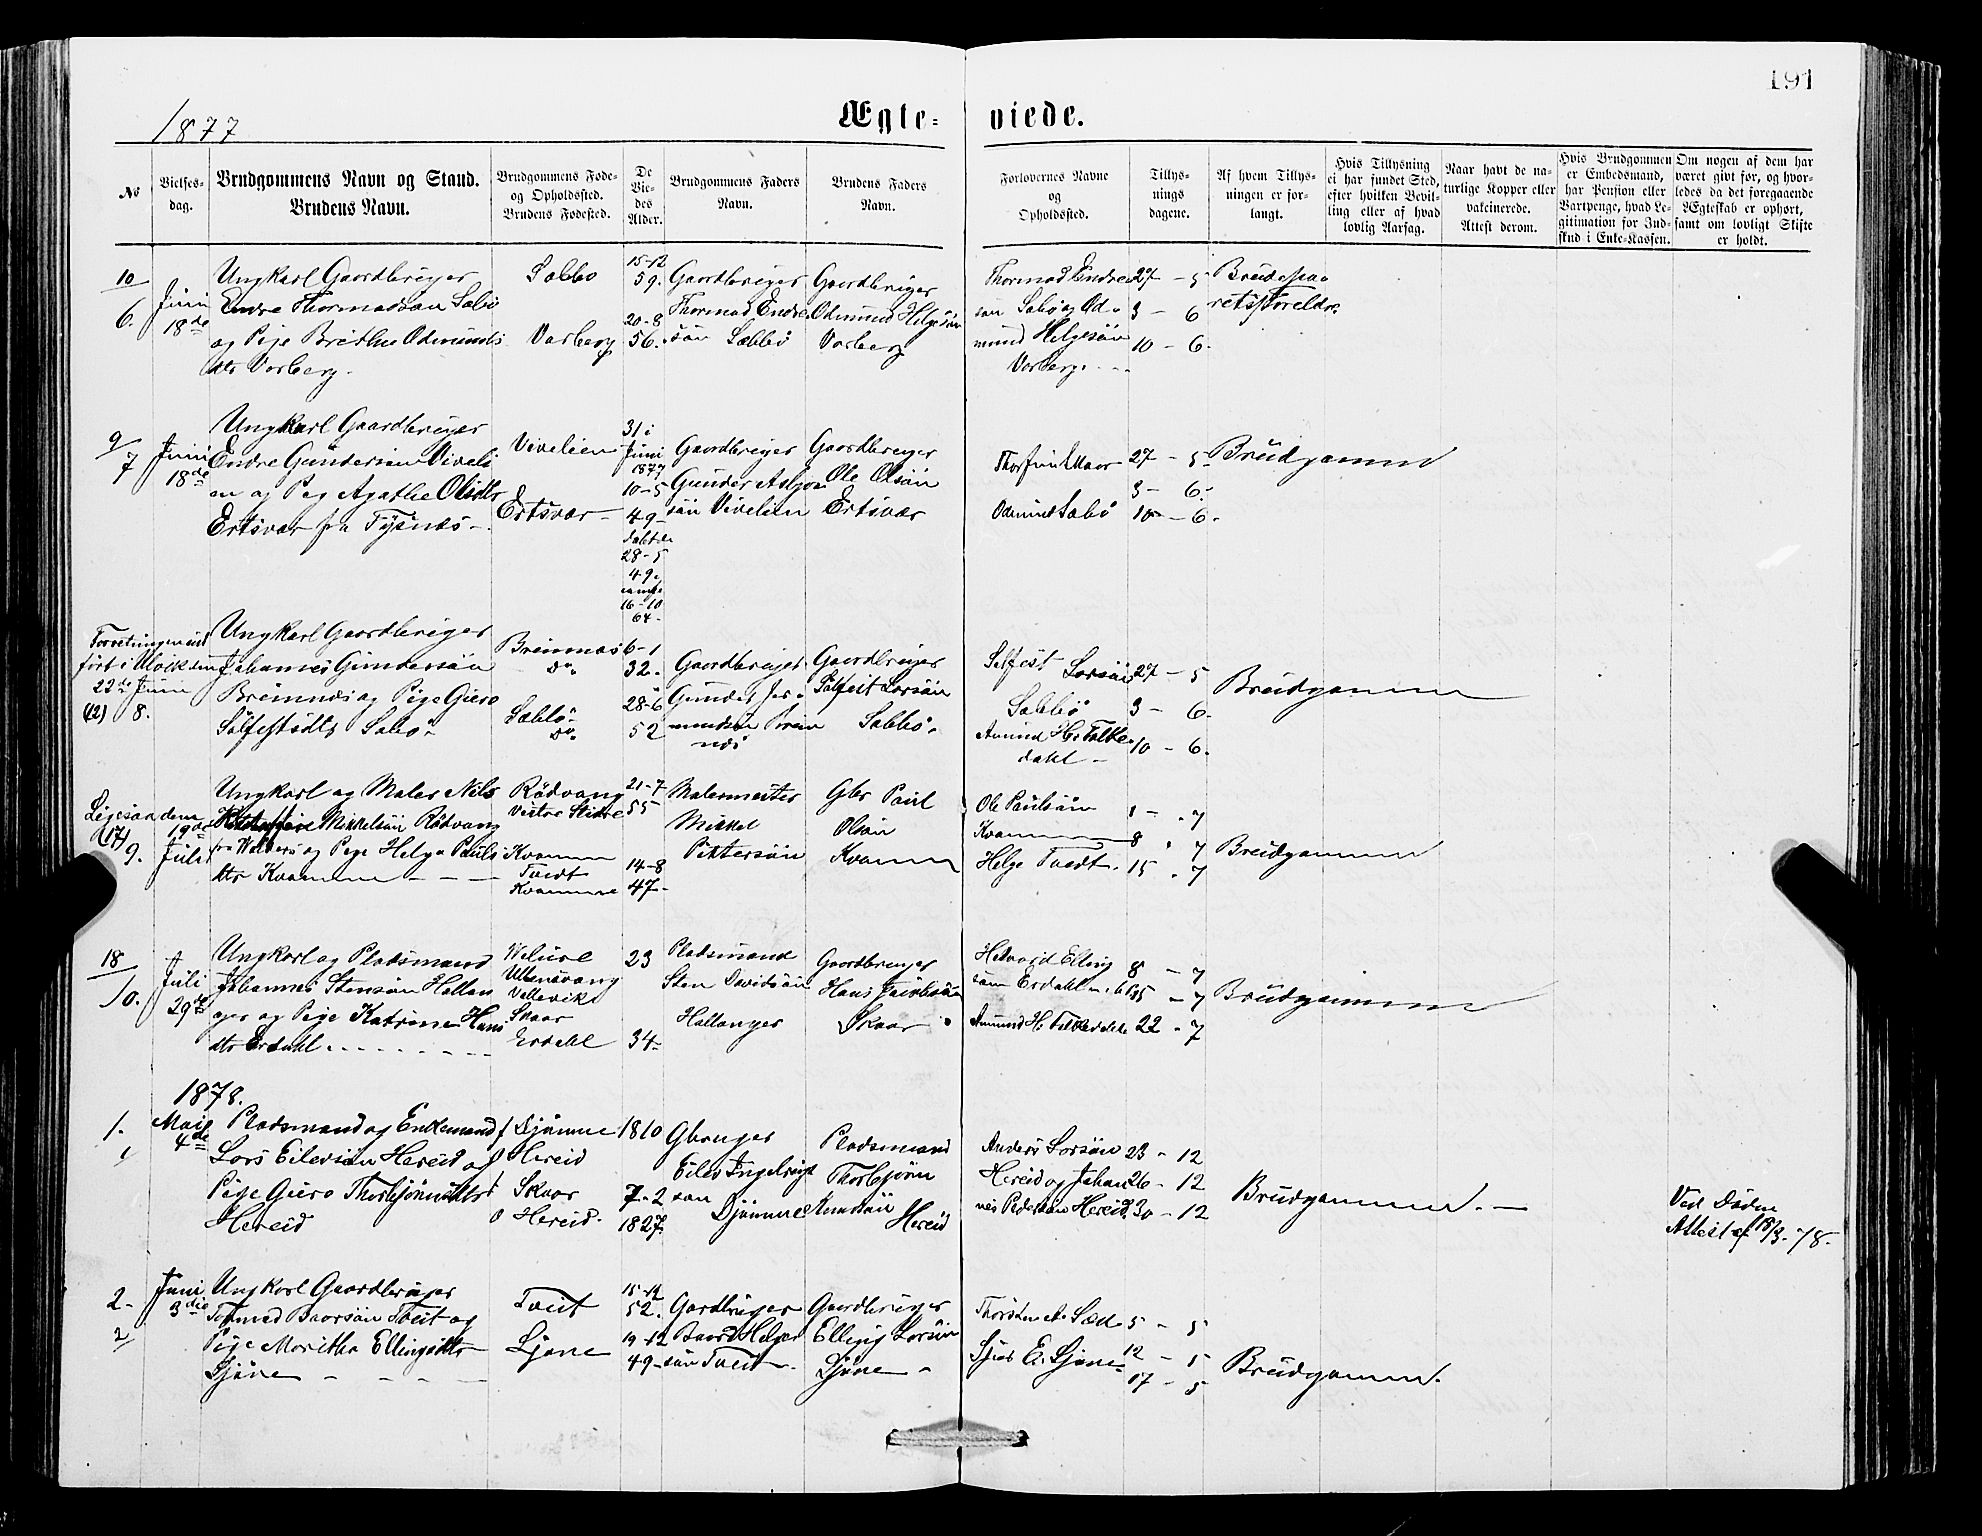 191
1877
Ægte- viede.
No
Vielses-
dag.
Brudgommens Navn og Stand.
Brudens Navn.
Brudgommens Føde-
og Opholdssted.
Brudens Fødested.
De
Vie-
des
Alder.
Brudgommens Faders
Navn.
Brudens Faders
Navn.
Forlovernes Navne
og
Opholdssted.
Tillys-
nings
dagene.
Af hvem Tillys-
ningen er for-
langt.
Hvis Tillysning
ei har fundet Sted,
efter hvilken Bevil-
ling eller af hvad
lovlig Aarsag.
Naar havt de na-
turlige Kopper eller
vakcinerede.
Attest derom.
Hvis Brudgommen
er Embedsmand,
har Pension eller
Vartpenge, hvad Le-
gitimation for Ind-
skud i Enke-Kassen.
Om nogen af dem har
været givt før, og hvor-
ledes da det foregaaende
Ægteskab er ophørt,
samt om lovligt Skifte
er holdt.
10
6.
Juni
18de
Ungkarl Gaardbruger
Endre Thormodsøn Sæbø
og Pige Brithe Odmunds
dtr Varberg
Sæbbø
Varberg
15-12
59.
20-8
56.
Gaardbruger
Thormod Endre
søn Sæbbø
Gaardbruger
Odmund Helgesøn
Varberg
Thormod Endre
søn Sæbø og Od-
mund Helgesøn
Varberg.
27 - 5
3 - 6
10 - 6.
Brudepa-
rets Foreldre
9
7
Juni
18de
Ungkarl Gaardbruger
Endre Gundersøn Viveli
en og Pige Agathe Olsdtr
Ertsvær fra Tysnæs
Vivelien
Ertsvær
31 i
Juni
1877
10-5
49-
28-5
49.
16-10
64-
Gaardbruger
Gunder Asbjørn
søn Vivelien
Gaardbruger
Ole Olsøn
Ertsvær
Odmund Sæbø
27 - 5
3 - 6.
10 - 6.
Brudgommen
ført i
22de Juni
(12) 8.
Ungkarl Gaardbruger
Johannes Gundersøn
Breimnæs og Pige Guro
Sølfestsdtr Sæbø
Breimnæs
do
Sæbbø
do
6-1
32.
28-6
52
Gaardbruger
Gaardbruger
Solfest Larsøn
Sæbbø
Solfest Larsøn
Sæbbø
Amund H. Falke
dahl
27 - 5
3 - 6.
10 - 6.
Brudgommen
(17)
9.
19de
Juli
Ungkarl og Maler Nils
Mikkelsøn Rødvang
fra Walders og Pige Helga Pauls
dtr Kvamme
Rødvang
Vestre Slidre
Kvamme
Tveidt
Kvamme
21-7
55
14-8
47-
Malermester
Mikkel
Pettersøn
Gbr Paul
Olsøn
Kvamme
Ole Paulsøn
Kvamme
Helge Tvedt.
1 - 7
8 - 7
15 - 7
Brudgommen
18
10.
Juli
29de
Ungkarl og Pladsmand
Johannes Stensøn Hallan
ger og Pige Katrine Hans
dtr Erdahl
Ullensvang
Skaar
Erdahl
23
34-
Pladsmand
Sten Davidsøn
Hallanger
Gaardbruger
Hans Jacobsøn
Skaar
Halvard Elling
søn Erdahl
Amund H. Falkedahl
8 - 7
15 - 7
22 - 7
Brudgommen
1878.
1.
1
Mai
4de
Pladsmand og Enkemand
Lars Eilersøn Hereid og
Pige Guro Thorbjørnsdtr
Hereid
f Djønne
Hereid
f Skaar
O Hereid.
1810
7-2
1827.
Gbruger
Eiler Ingelbrigt
søn
Djønne
Pladsmand
Thorbjørn
Amundsøn
Hereid
Anders Larsøn
Hereid og Johan
nes Pedersøn Hereid.
23 - 12
26 - 12
30 - 12
Brudgommen.
Ved Døden
Attest af 18/3-78.
2-
2
Juni
3die
Ungkarl Gaardbruger
Tormod Baarsøn Tveit og
Pige Maritha Ellingsdtr
Ljøne
Tveit
Ljøne
15-12
52.
19-12
49-
Gardbruger
Baard Helge
søn Tveit
Gaardbruger
Elling Larsøn
Ljøne
Sjur E. Ljøne
5 - 5
12 - 5
17 - 5
Brudgommen.